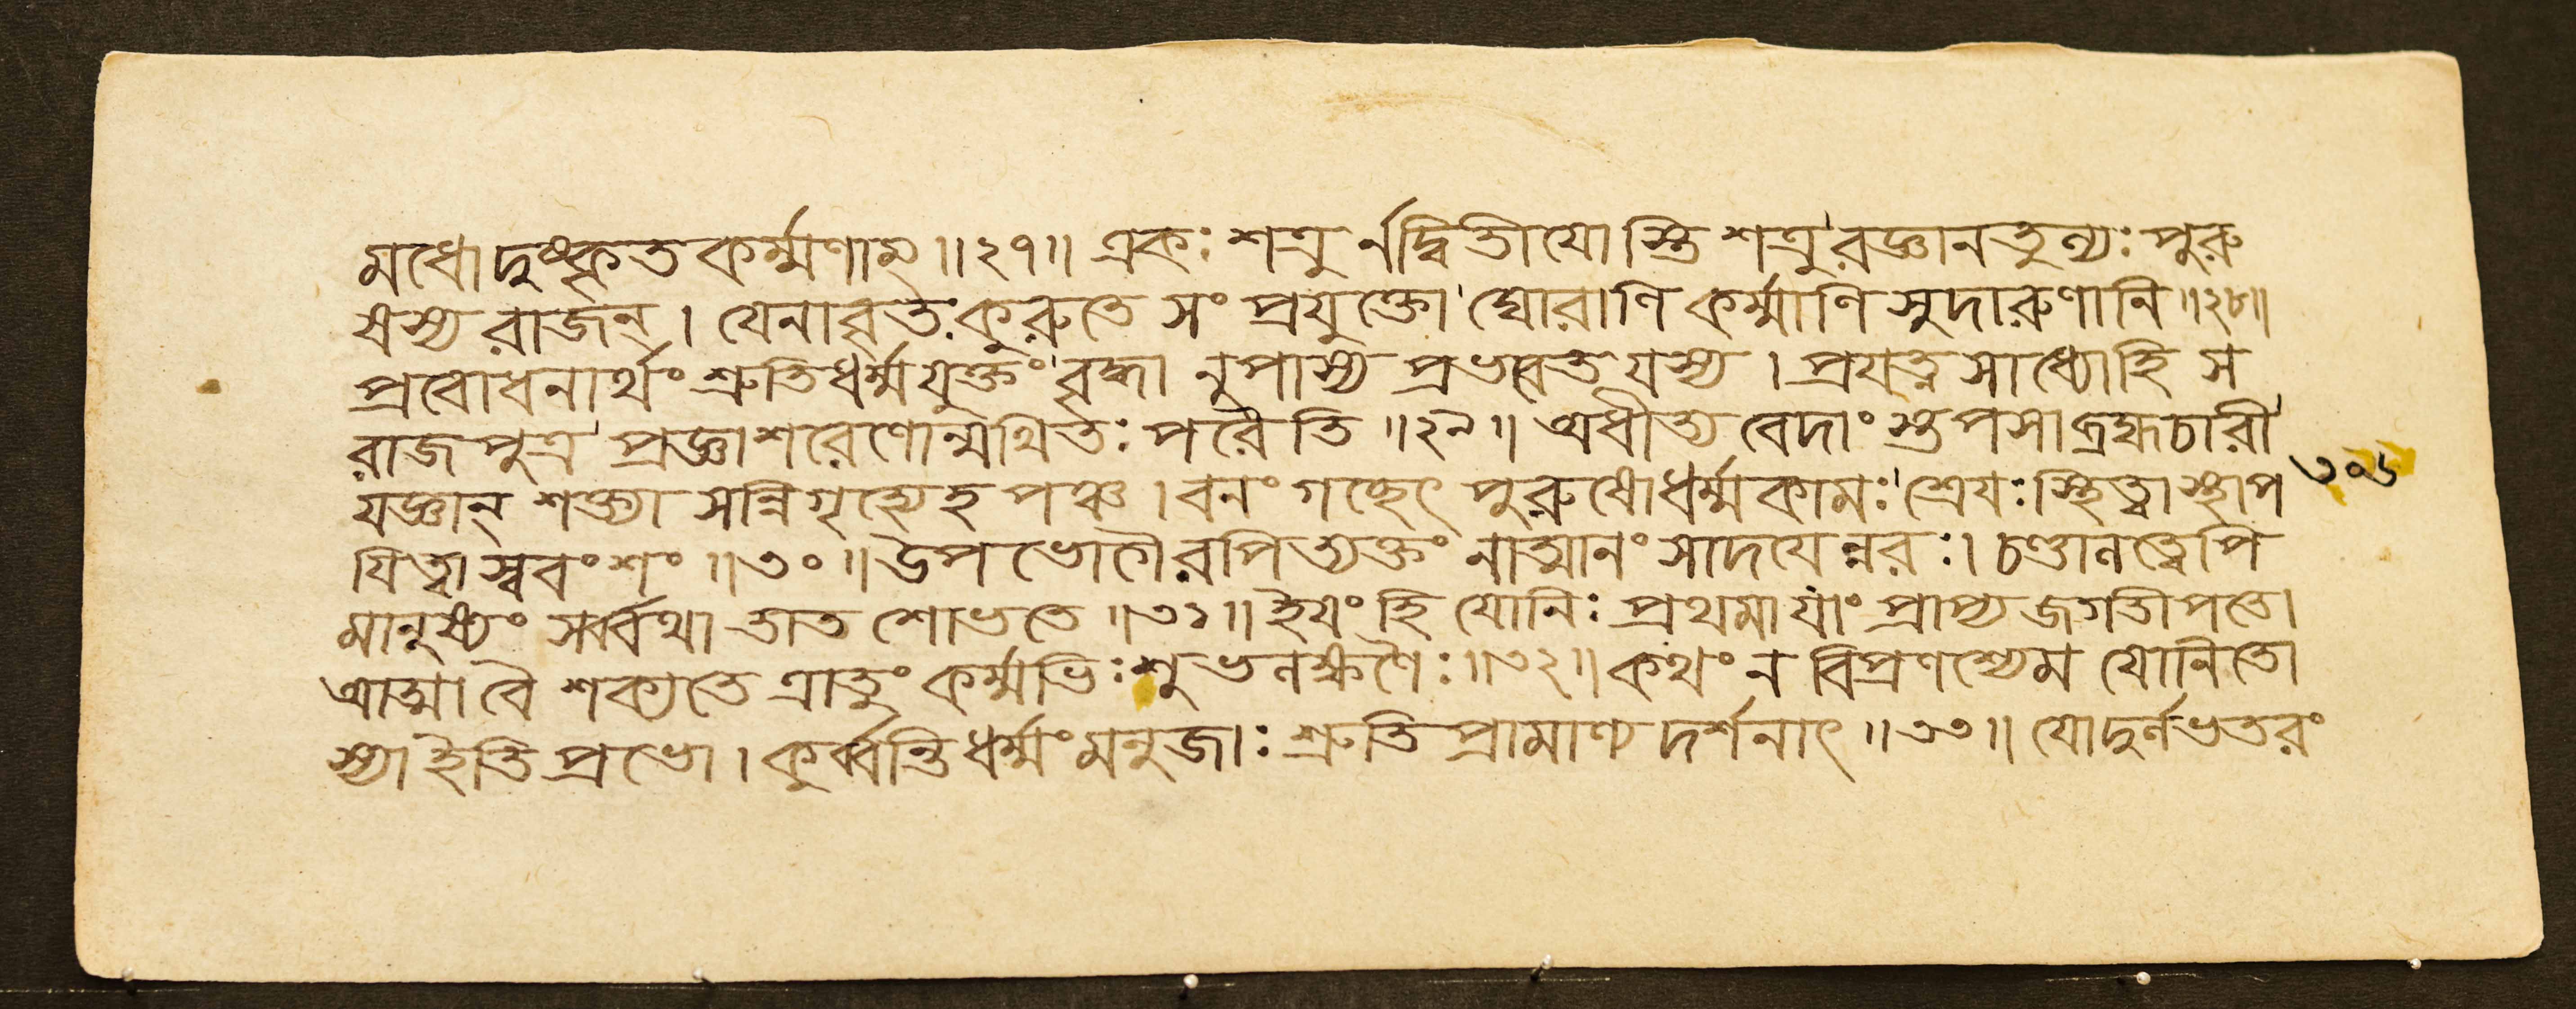 মধো দুষ্কৃত কর্ম্মণাম ॥২৭॥ একঃ শত্রু র্নদ্বিতীয়ো স্তি শত্রুরজ্ঞানতুল্যঃ পুরু
ষস্য রাজন্ । যেনাবৃতঃ কুরুতে সং প্রযুক্তো ঘোরাণি কর্ম্মাণি সুদারুণানি ॥২৮॥
প্রবোধনার্থং শ্রুতিধর্ম্মযুক্তং বৃদ্ধা নুপাস্য প্রভবেত যস্য । প্রযত্ন সাধ্যোহি স
রাজপুত্র প্রজ্ঞাশরেণোন্মথিতঃ পরৈতি ॥২৯॥ অধীত্য বেদাং স্তপসা ব্রহ্মচারী
যজ্ঞান্ শক্ত্যা সন্নিগৃহ্যেহ পঞ্চ । বনং গচ্ছেৎ পুরুষোধর্ম্মকামঃ শ্রেযঃ স্থিত্বা স্থাপ
যিত্বা স্ববংশং ॥৩০॥ উপভোগৈরপিত্যক্তং নাত্মানং সাদযেন্নরঃ। চণ্ডালত্বেপি
মানুষ্যং সর্ব্বথা তাত শোভতে ॥৩১॥ ইযং হি যোনিঃ প্রথমা যাং প্রাপ্য জগতীপতে
আত্মা বৈ শক্যতে ত্রাতুং কর্ম্মভিঃ শুভলক্ষণৈঃ ॥৩২॥ কথং ন বিপ্রণশ্যেম যোনিতো
স্যা ইতি প্রভো । কুর্ব্বন্তি ধর্ম্মং মনুজাঃ শ্রুতি প্রামাণ্য দর্শনাৎ ॥৩৩॥ যোদুর্লভতরং
৩০৬